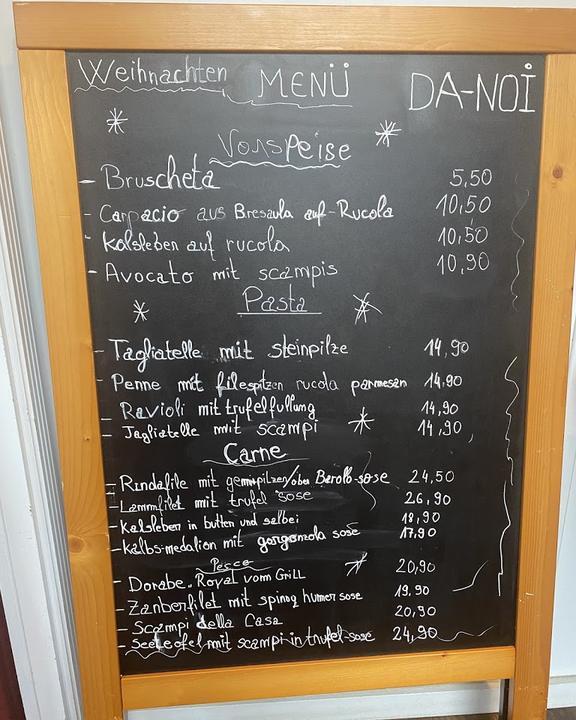 Weihnachten MENÜ DA-NOI
Vorspeise
- Bruscheta 5,50
- Carpacio aus Bresaula auf-Rucola 10,50
- Kalsleben auf rucola 10,50
- Avocato mit scampis 10,90
Pasta
- Tagliatelle mit steinpilze 14,90
- Penne mit filespitzen rucola parmesan 14,90
- Ravioli mit trufelfullung 14,90
- Tagliatelle mit scampi 14,90
Carne
- Rindafile mit 24,50
- Lammfilet mit trufel sose 26,90
- Kalsleben in butten und salbei 18,90
- Kalbs-medalion mit gorgonzola sose 17,90
Pesce
- Dorabe-Royal vom Grill 20,90
- Zanberfilet mit spinag humer sose 19,90
- Scampi della Casa 20,90
- Seeteofel mit scampi in trufel-sose 24,90